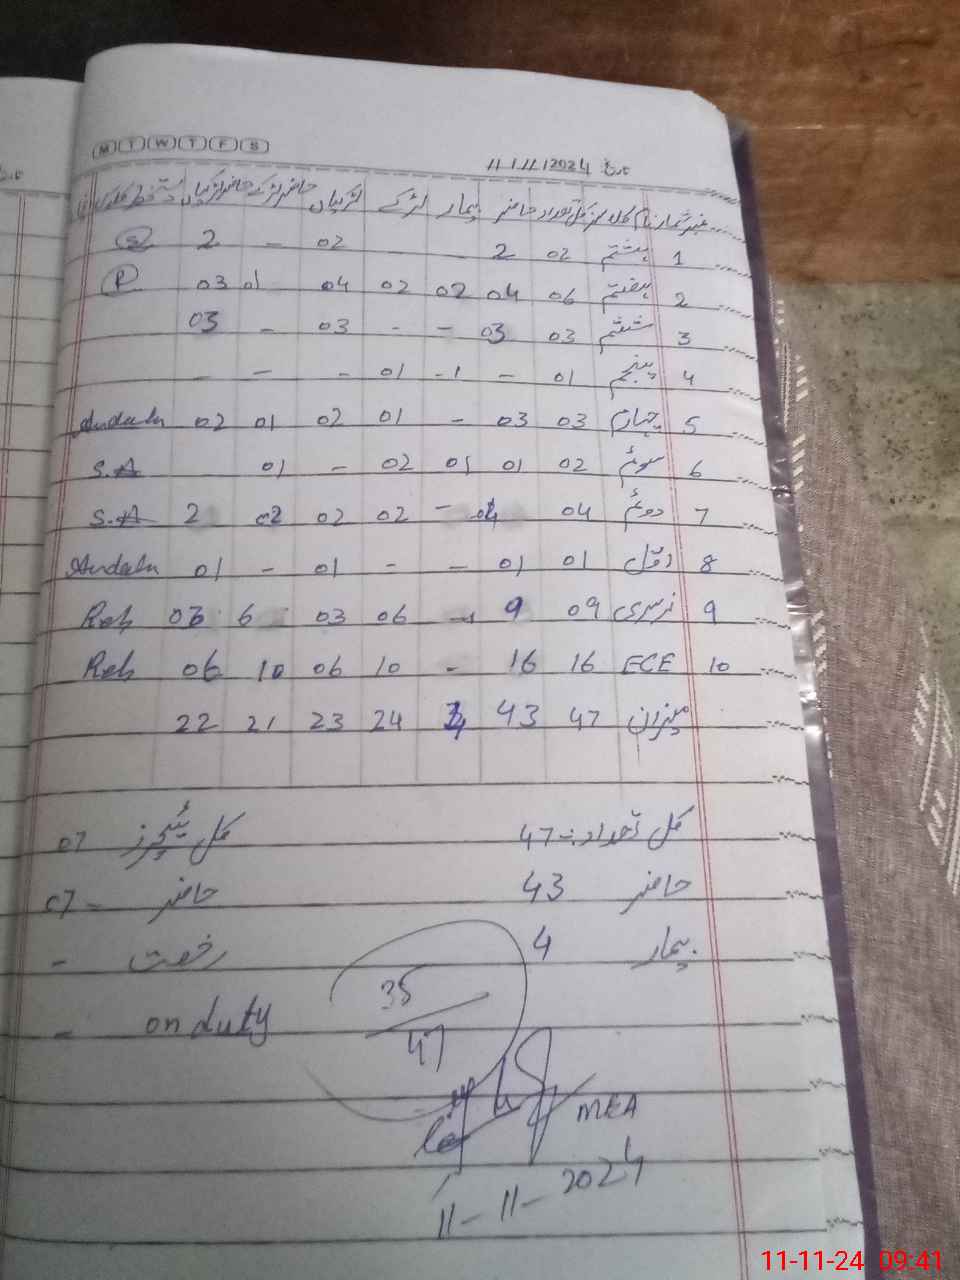 M T W T F S
تاریخ 11/11/2024
نمبر شمار نام کلاس کل تعداد حاضر بیمار لڑکے لڑکیاں حاضر لڑکے حاضر لڑکیاں دستخط
1 ہشتم 02 2 02 - 2
2 ہفتم 06 04 02 02 04 01 03 P
3 ششم 03 03 - - 03 - 03
4 پنجم 01 - -1 01 - - -
5 چہارم 03 03 - 01 02 01 02
6 سوئم 02 01 01 02 - 01 S.A
7 دوئم 04 04 - 02 02 02 2 S.A
8 اول 01 01 - - 01 - 01
9 نرسری 09 9 - 06 03 6 03 Reh
10 ECE 16 16 - 10 06 10 06 Reh
میزان 47 43 4 24 23 21 22
کل تعداد :- 47 کل ٹیچرز 07
حاضر 43 حاضر - 07
بیمار 4 رخصت -
35 on duty -
47
MEA
11-11-2024
11-11-24 09:41